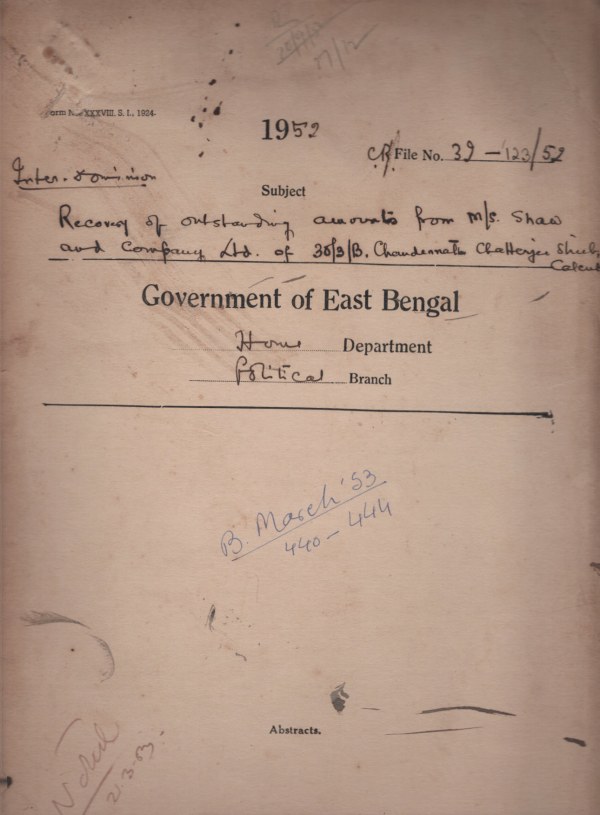 17/12
Form No. XXXVIII. S. I., 1924.
1952
CR/ File No. 39-123/52
Inter-Dominion
Subject
Recovery of outstanding amounts from M/s. Shaw
and Company Ltd. of 35/3/B, Chandernath Chatterjee Street,
Government of East Bengal
Home Department
Political Branch
B. March '53
440-444
Abstracts.
21.3.53.